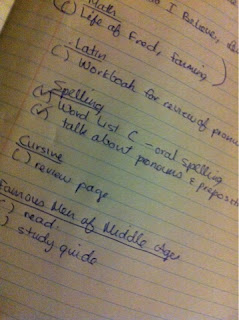 I Believe,
Math
( ) Life of Fred, farming )
Latin
( ) Workbook for review of pronou
Spelling
(✓) Word List C - oral spelling
(✓) talk about pronouns & preposit
Cursive
( ) review page
Famous Men of Middle Ages
( ) read
( ) study guide